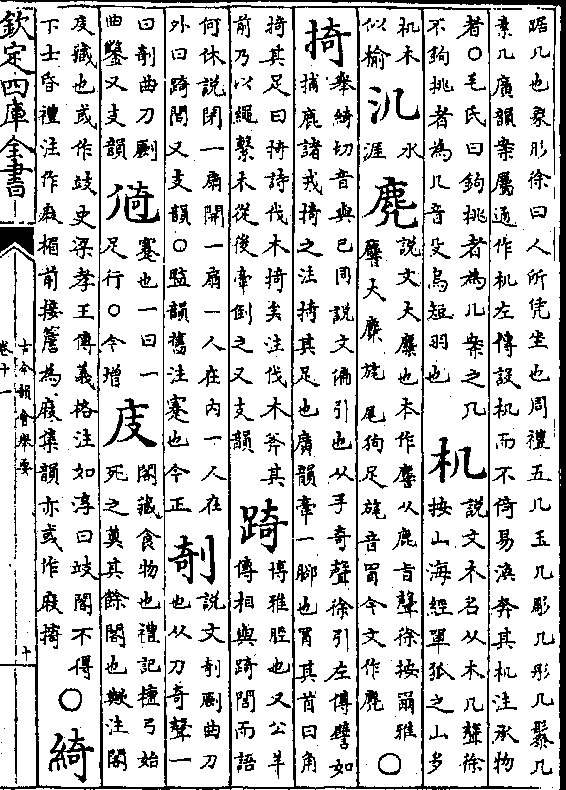 踞几也象形徐曰人所凭坐也周禮五几玉几彫几彤几髹几
素几廣韻案屬通作机左傳設机而不倚易渙奔其机注承物
者○毛氏曰鉤挑者為几案之几
不鉤挑者為几音殳鳥短羽也
机
說文木名从木几聲徐
按山海經單狐之山多
机木
似榆
氿
水
涯
麂
說文大麋也本作𪊨从鹿旨聲徐按爾雅
𪊨大麋旄尾狗足旄音冒今文作麂
○
掎
舉綺切音與已同說文偏引也从手奇聲徐引左傳譬如
捕鹿諸戎掎之注掎其足也廣韻牽一腳也冒其首曰角
掎其足曰掎詩伐木掎矣注伐木斧其
前乃以繩繫木從後牽倒之又支韻
踦
博雅脛也又公羊
傳相與踦閭而語
何休說閉一扇開一扇一人在內一人在
外曰踦閭又支韻○監韻舊注蹇也今正
剞
說文剞劂曲刀
也从刀奇聲一
曰剞曲刀劂
曲鑿又支韻
徛
蹇也一曰一
足行○今增
庋
閣藏食物也禮記檀弓始
死之奠其餘閣也歟注閣
庋藏也或作歧史梁孝王傳義格注如淳曰歧閣不得
下士昏禮注作庪楣前接簷為庪集韻亦或作庪掎
○
綺
欽定四庫全書
古今韻會舉要
卷十一
十